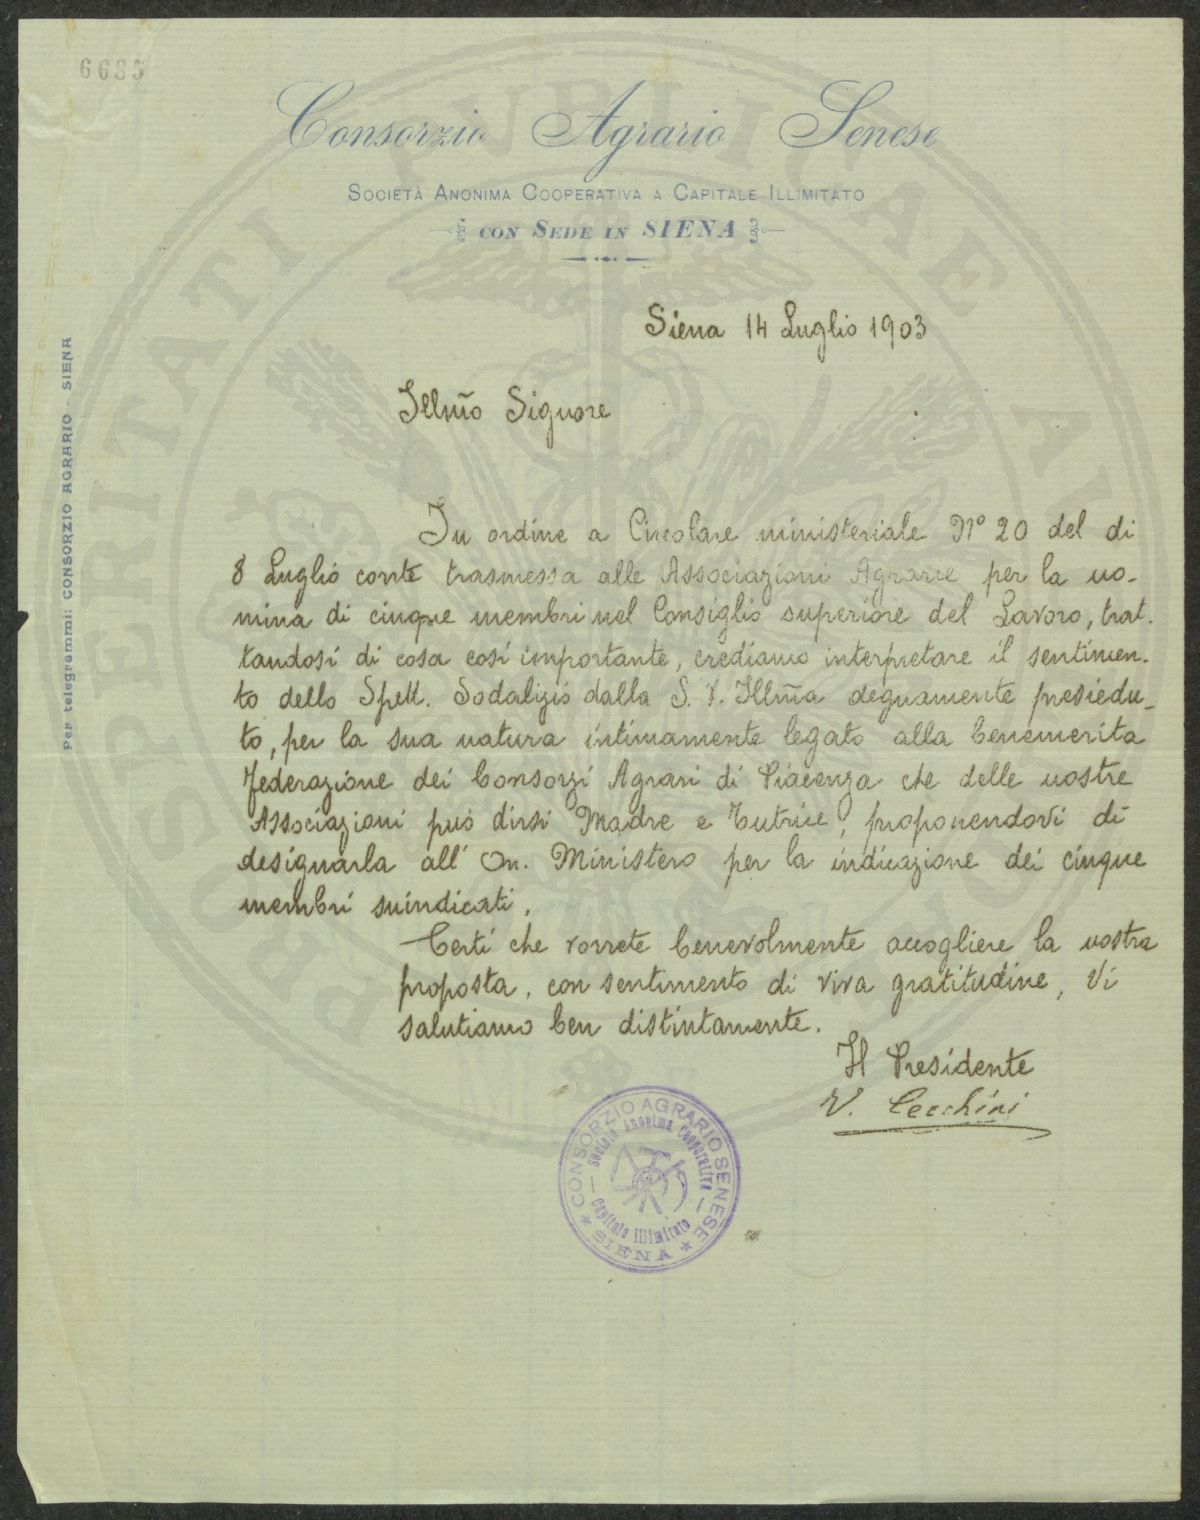 6685
Consorzio Agrario Senese
SOCIETÀ ANONIMA COOPERATIVA A CAPITALE ILLIMITATO
CON SEDE IN SIENA
Per telegrammi: CONSORZIO AGRARIO - SIENA
Siena 14 Luglio 1903
Illm̃o Signore
In ordine a Circolare ministeriale Nº 20 del di
8 Luglio corrte trasmessa alle Associazioni Agrarie per la no-
mina di cinque membri nel Consiglio superiore del Lavoro, trat-
tandosi di cosa così importante, crediamo interpretare il sentimen-
to dello Spett. Sodalizio dalla S. V. Illm̃a degnamente presiedu-
to, per la sua natura intimamente legato alla benemerita
Federazione dei Consorzi Agrari di Piacenza che delle nostre
Associazioni può dirsi Madre e Tutrice, proponendovi di
designarla all' On. Ministero per la indicazione dei cinque
membri suindicati.
Certi che vorrete benevolmente accogliere la nostra
proposta, con sentimento di viva gratitudine, Vi
salutiamo ben distintamente.
Il Presidente
V. Cecchini
CONSORZIO AGRARIO SENESE
Società Anonima Cooperativa
Capitale Illimitato
★ SIENA ★
PROSPERITATI PUBLICAE